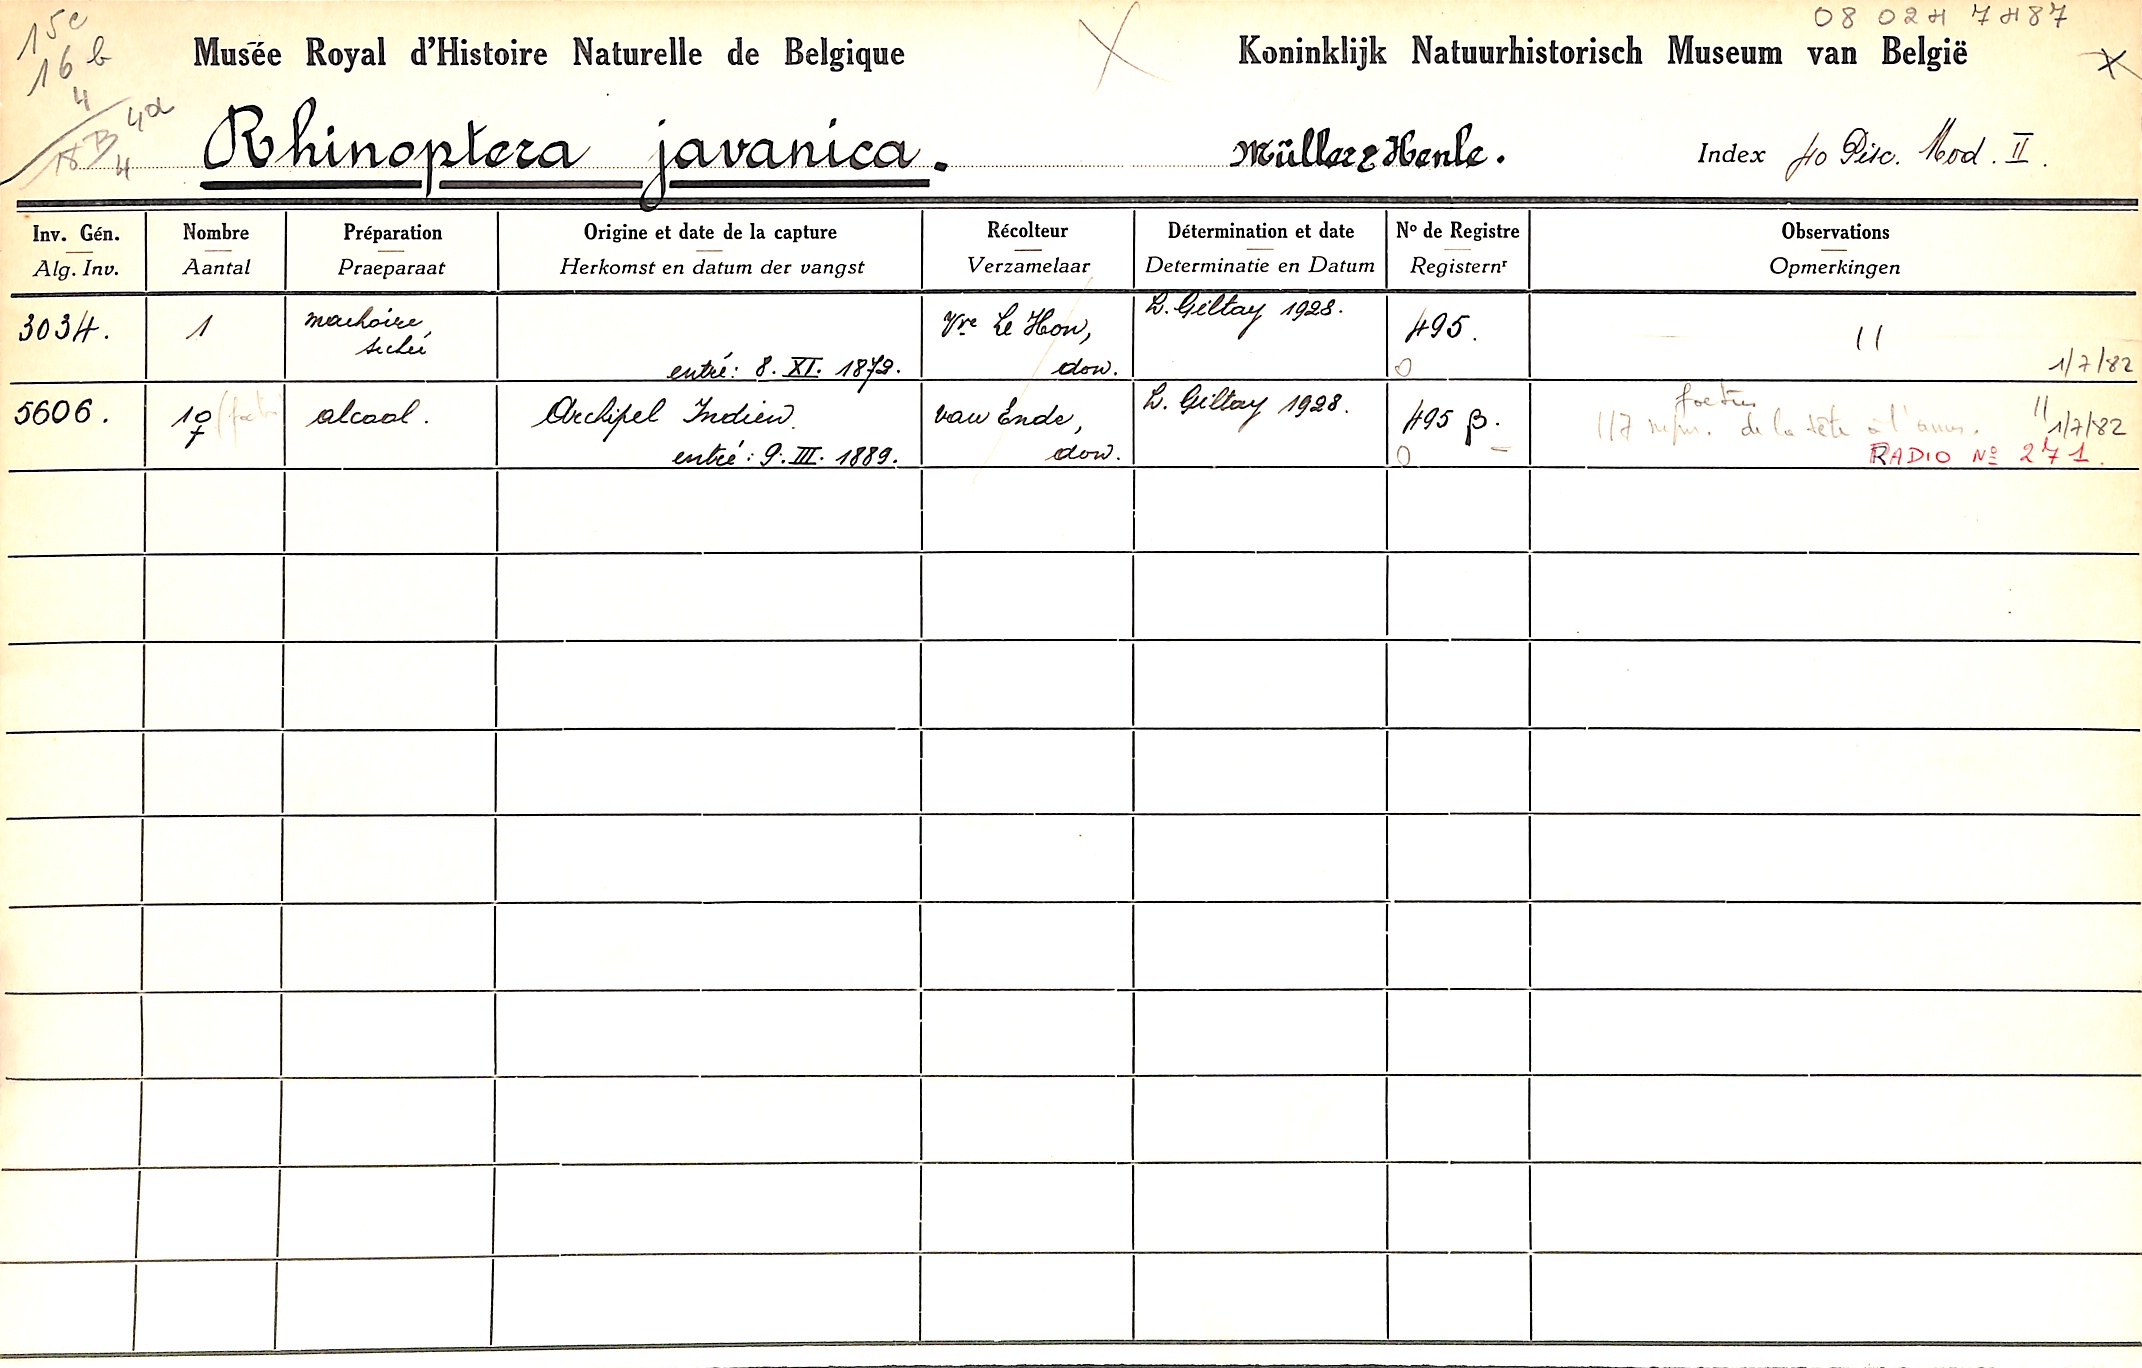 15c
16 b
4
4a
18 B
4
08 024 7487
Musée Royal d'Histoire Naturelle de Belgique
Koninklijk Natuurhistorisch Museum van België
Rhinoptera javanica.
Müller & Henle.
Index 40 Pisc. Mod. II.
Inv. Gén.
Alg. Inv.
Nombre
Aantal
Préparation
Praeparaat
Origine et date de la capture
Herkomst en datum der vangst
Récolteur
Verzamelaar
Détermination et date
Determinatie en Datum
Nº de Registre
Registernʳ
Observations
Opmerkingen
3034.
1
machoire,
séchée
entré: 8. XI. 1879.
Vve Le Hon,
don.
L. Giltay 1928.
495.
11
1/7/82
5606.
1♀
alcool.
Archipel Indien.
entré: 9. III. 1889.
van Ende,
don.
L. Giltay 1928.
495 β.
foetus
117 m/m. de la tête à l'anus.
11
1/7/82
RADIO Nº 271.